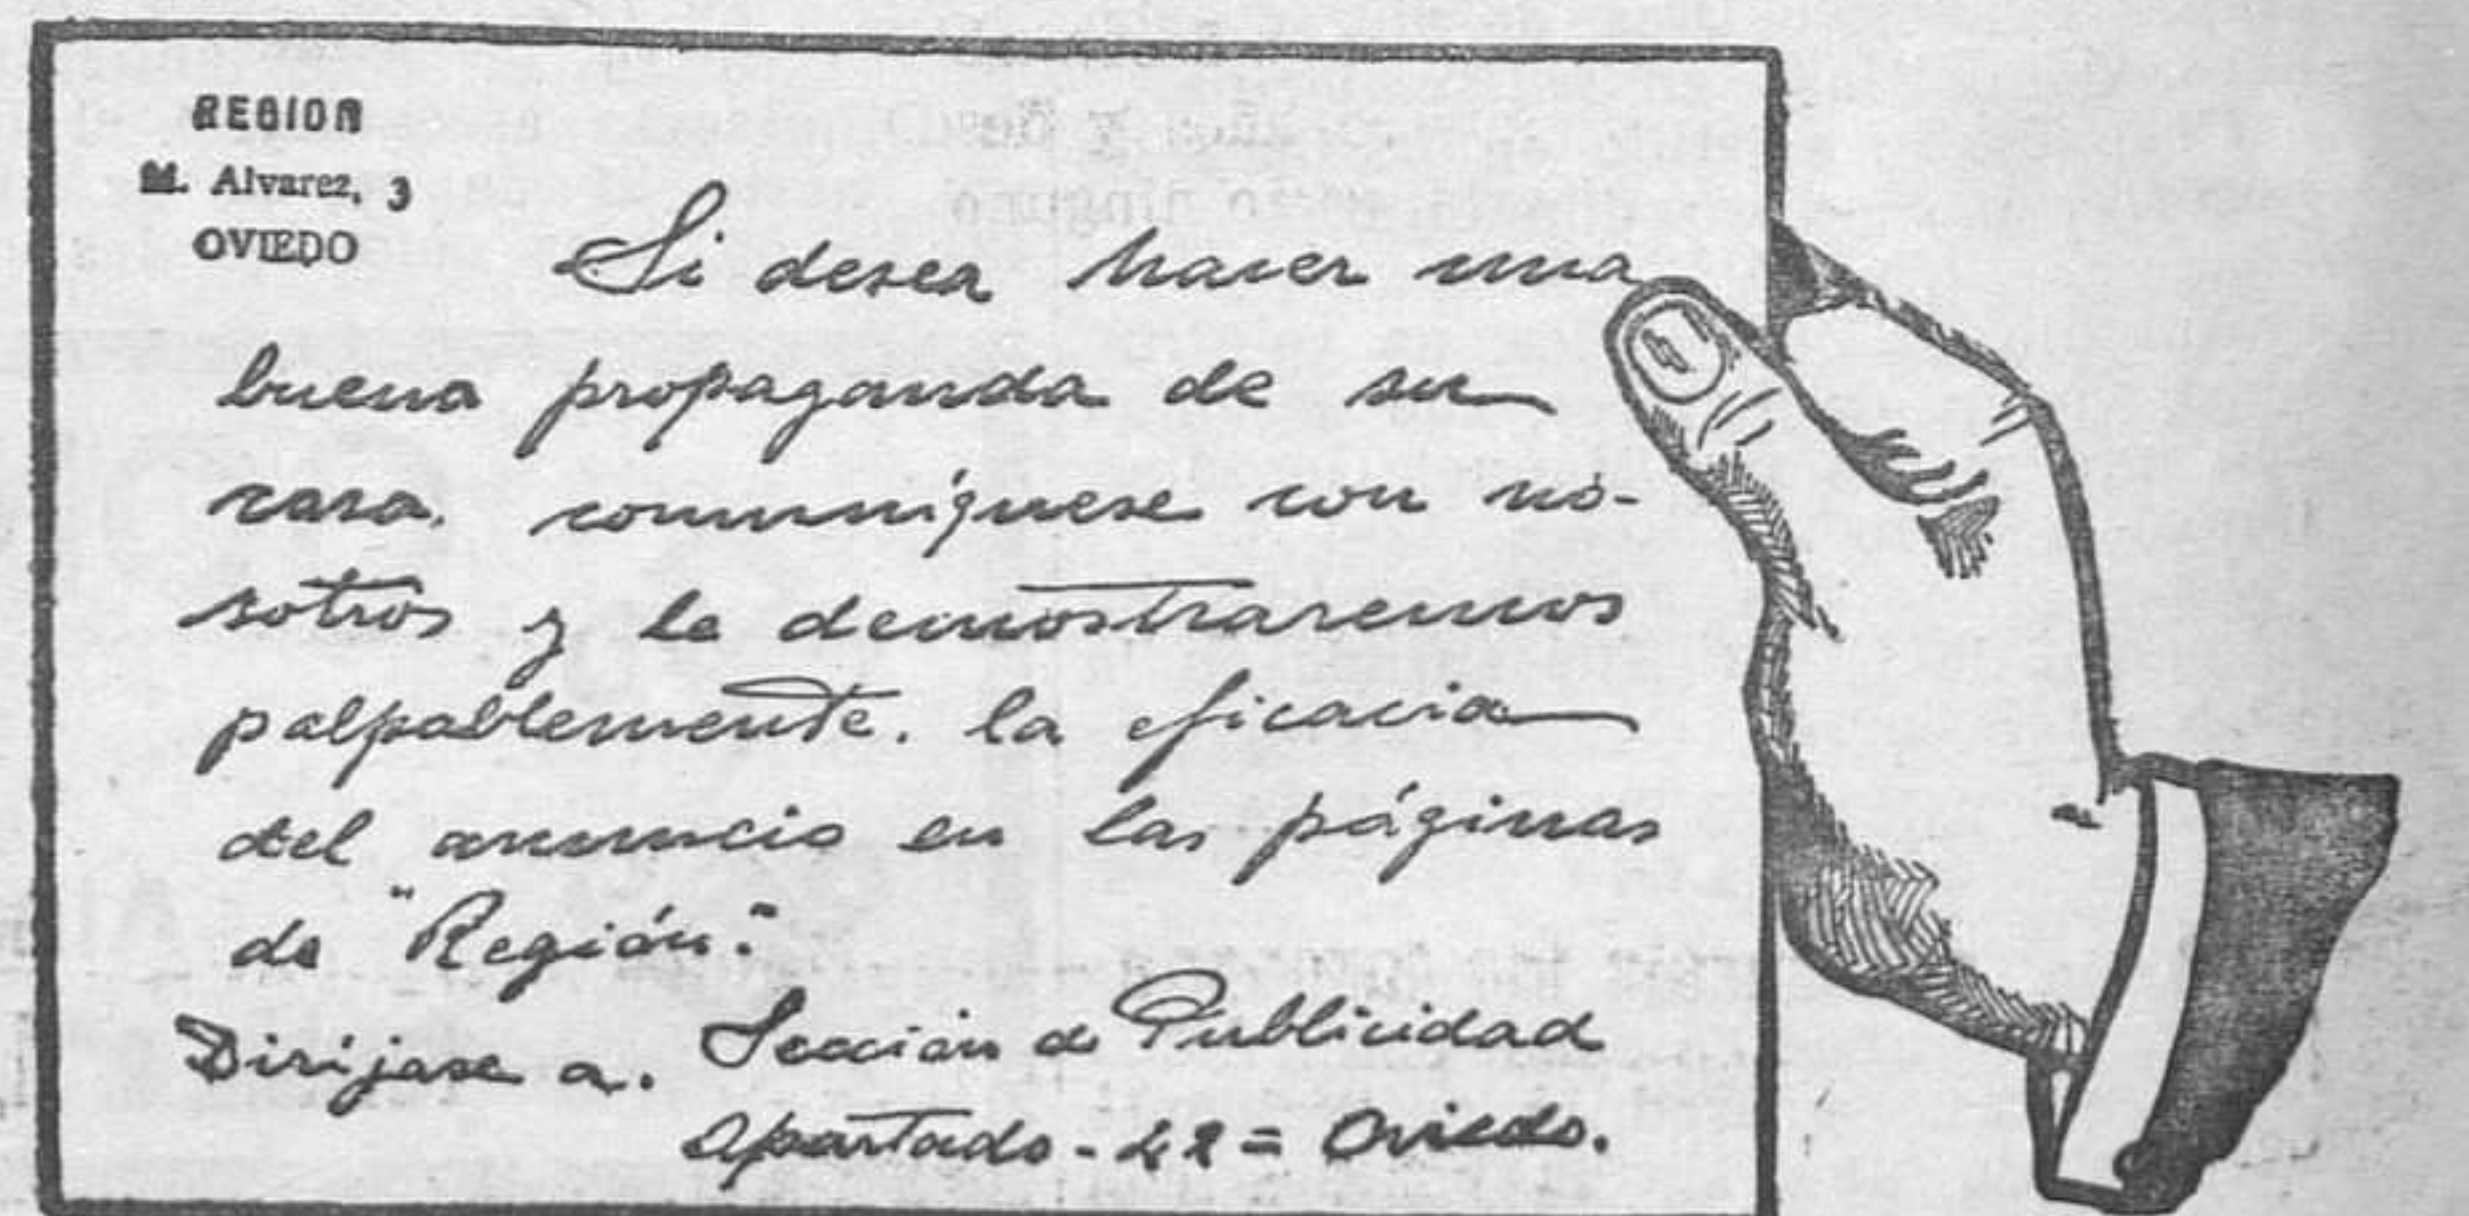 REGION
M. Alvarez, 3
OVIEDO
Si desea hacer una
buena propaganda de su
casa, comuníquese con no-
sotros y le demostraremos
palpablemente, la eficacia
del anuncio en las páginas
de "Región".
Diríjase a. Sección de Publicidad
Apartado - 42 = Oviedo.